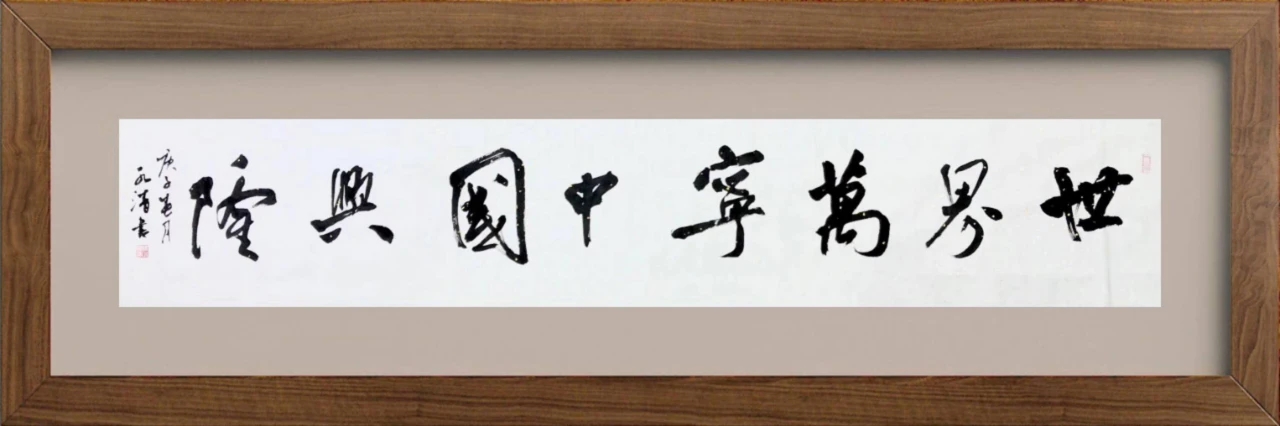 世界萬寧中國興隆
庚子春月
永清書